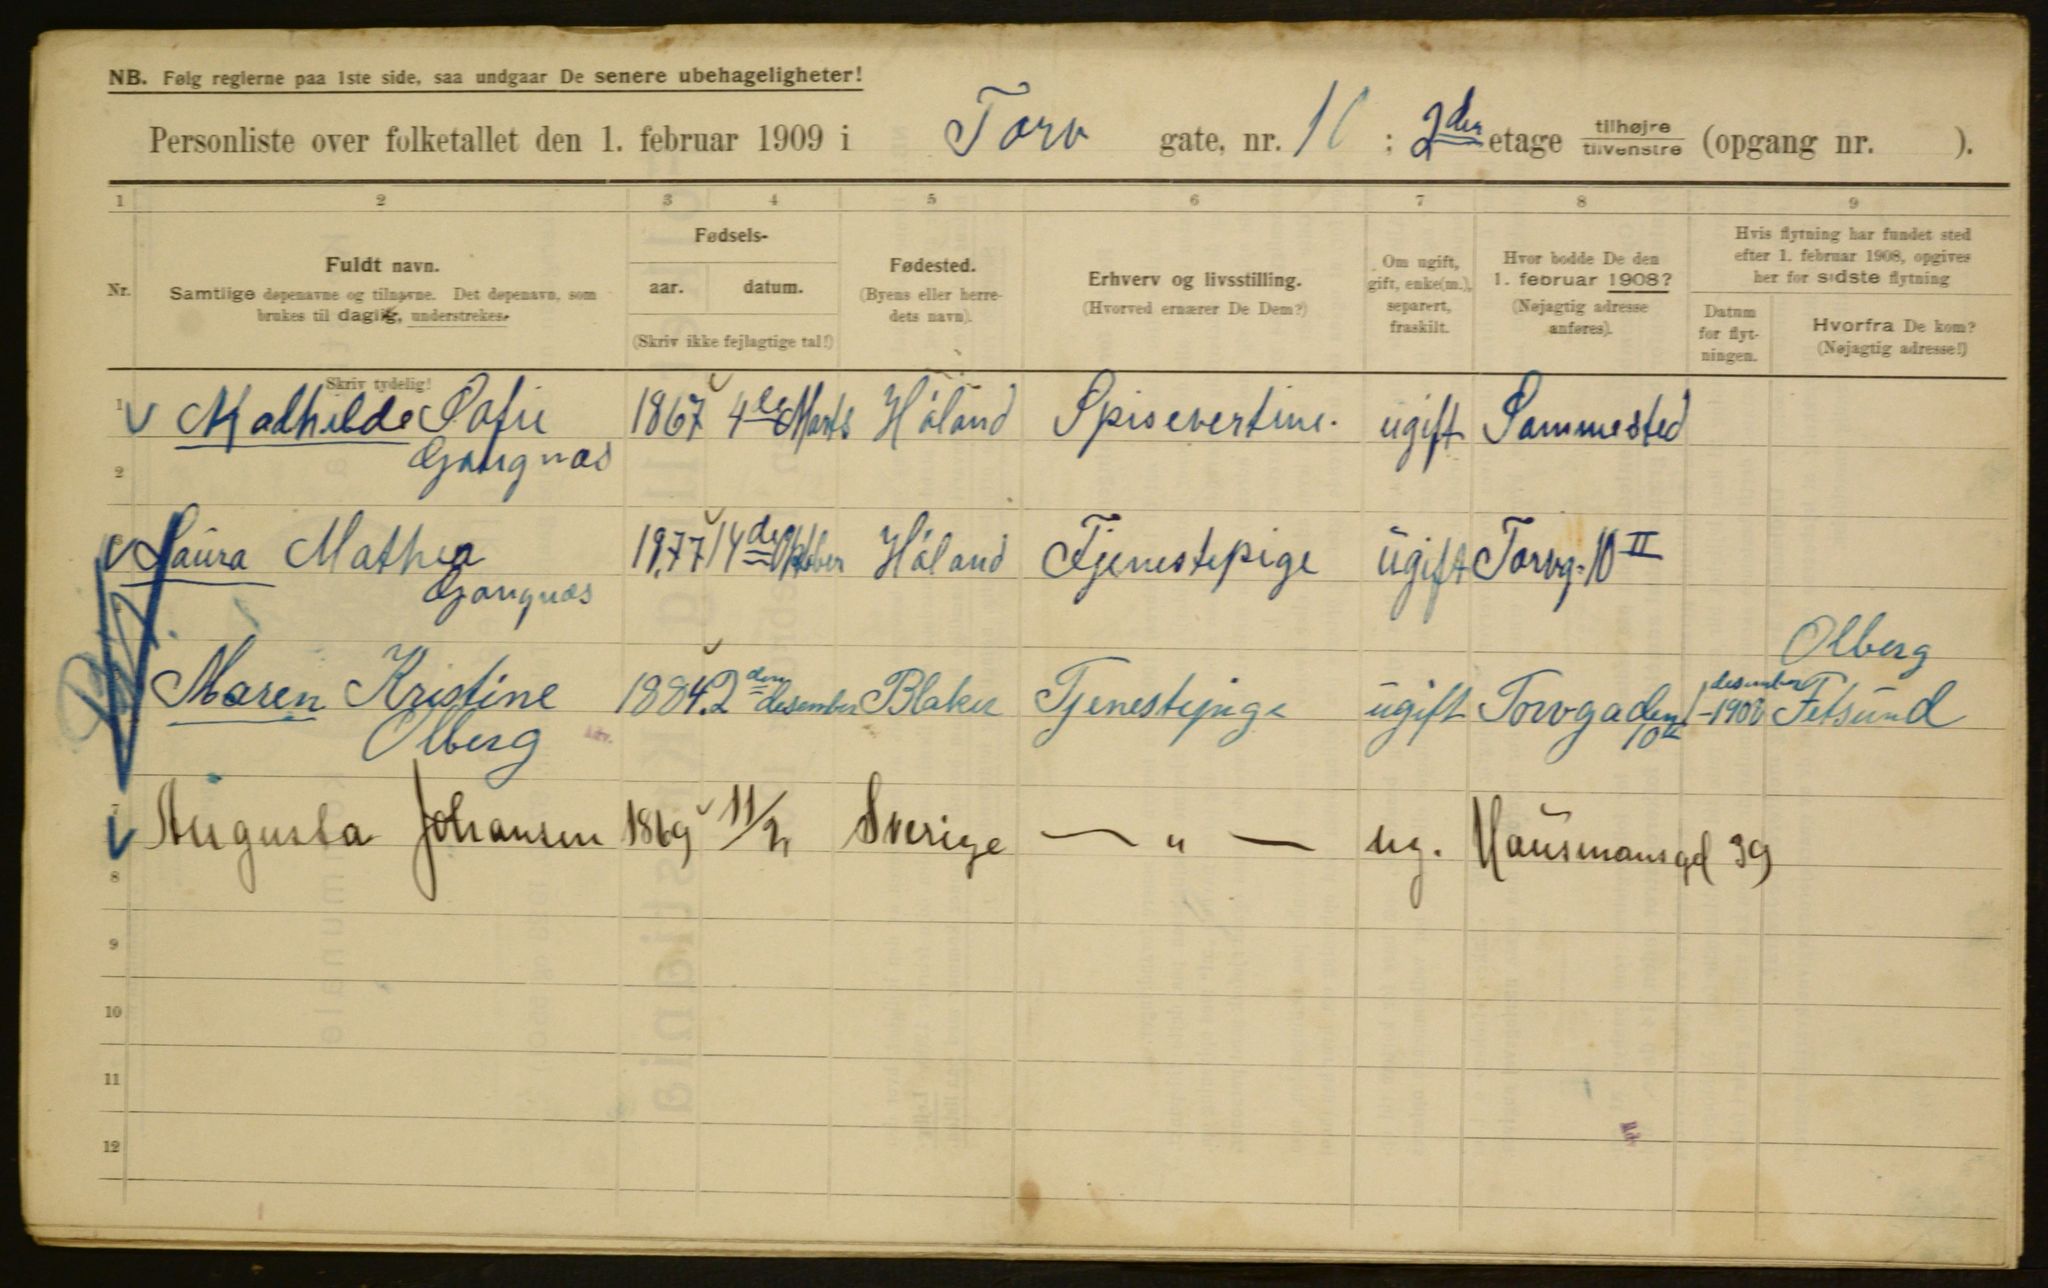 NB. Følg reglerne paa 1ste side, saa undgaar De senere ubehageligheter!
Personliste over folketallet den 1. februar 1909 i Torv gate, nr. 10 ; 2den etage tilhøjre tilvenstre (opgang nr. ).
1 2 3 4 5 6 7 8 9
Nr.
Fuldt navn.
Samtlige døpenavne og tilnavne. Det døpenavn, som
brukes til daglig, understrekes.
Skriv tydelig!
Fødsels-
aar. datum.
(Skriv ikke fejlagtige tal!)
Fødested.
(Byens eller herre-
dets navn).
Erhverv og livsstilling.
(Hvorved ernærer De Dem?)
Om ugift,
gift, enke(m.),
separert,
fraskilt.
Hvor bodde De den
1. februar 1908?
(Nøjagtig adresse
anføres).
Hvis flytning har fundet sted
efter 1. februar 1908, opgives
her for sidste flytning
Datum
for flyt-
ningen.
Hvorfra De kom?
(Nøjagtig adresse!)
1 Mathilde Sofie 1867 4de Marts Høland Spisevertine. ugift Sammested
2 Gangnæs
Laura Mathea 1877 14de Oktober Høland Tjenestepige ugift Torvg. 10 II
Gangnæs
Olberg
Maren Kristine 1884 2den desember Blaker Tjenestepige ugift Torvgaden 10 1 desember 1908 Fetsund
Olberg
7 Augusta Johansen 1869 11/2 Sverige — " — ug. Hausmansgd 39
8
9
10
11
12